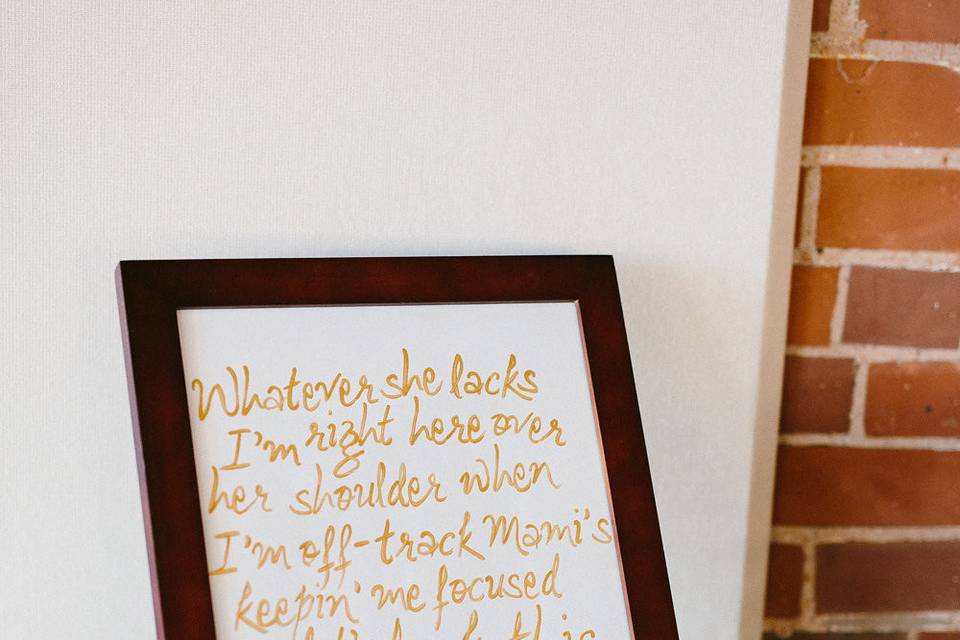 Whatever she lacks
I'm right here over
her shoulder when
I'm off-track Mami's
keepin' me focused
this